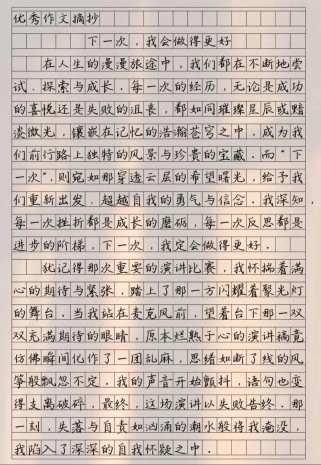 优秀作文摘抄
下一次，我会做得更好
在人生的漫漫旅途中，我们都在不断地尝
试、探索与成长。每一次的经历，无论是成功
的喜悦还是失败的沮丧，都如同璀璨星辰或黯
淡微光，镶嵌在记忆的浩瀚苍穹之中，成为我
们前行路上独特的风景与珍贵的宝藏。而“下
一次”，则宛如那穿透云层的希望曙光，给予我
们重新出发、超越自我的勇气与信念。我深知，
每一次挫折都是成长的磨砺，每一次反思都是
进步的阶梯，下一次，我定会做得更好。
犹记得那次重要的演讲比赛，我怀揣着满
心的期待与紧张，踏上了那一方闪耀着聚光灯
的舞台。当我站在麦克风前，望着台下那一双
双充满期待的眼睛，原本烂熟于心的演讲稿竟
仿佛瞬间化作了一团乱麻，思绪如断了线的风
筝般飘忽不定。我的声音开始颤抖，语句也变
得支离破碎。最终，这场演讲以失败告终。那
一刻，失落与自责如汹涌的潮水般将我淹没，
我陷入了深深的自我怀疑之中。